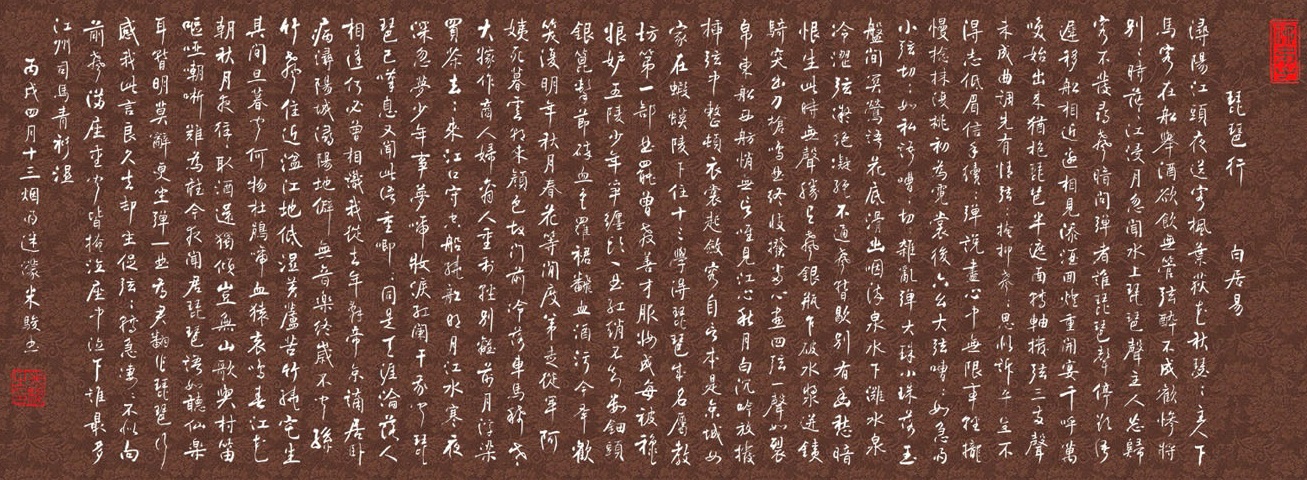 琵琶行　　白居易
潯陽江頭夜送客楓葉荻花秋瑟:主人下
馬客在船舉酒欲飲無管弦醉不成歡慘將
別:時茫:江浸月忽聞水上琵琶聲主人忘歸
客不發尋聲暗問彈者誰琵琶聲停欲語
遲移船相近邀相見添酒回燈重開宴千呼萬
喚始出來猶抱琵琶半遮面轉軸撥弦三五聲
未成曲調先有情弦:掩抑聲:思似訴平生不
得志低眉信手續:彈說盡心中無限事輕攏
慢捻抹復挑初為霓裳後六幺大弦嘈:如急雨
小弦切:如私語嘈:切:雜亂彈大珠小珠落玉
盤間關鶯語花底滑幽咽流泉水下灘水泉
冷澀弦凝絕凝絕不通聲暫歇別有幽愁暗
恨生此時無聲勝有聲銀瓶乍破水漿迸鐵
騎突出刀槍鳴曲終收撥當心畫四弦一聲如裂
帛東船西舫悄無言唯見江心秋月白沉吟放撥
插弦中整頓衣裳起斂容自言本是京城女
家在蝦蟆陵下住十三學得琵琶成名屬教
坊第一部曲罷曾教善才服妝成每被秋
娘妒五陵少年爭纏頭一曲紅綃不知數鈿頭
銀篦擊節碎血色羅裙翻酒污今年歡
笑復明年秋月春花等閒度弟走從軍阿
姨死暮去朝來顏色故門前冷落車馬稀老
大嫁作商人婦商人重利輕別離前月浮梁
買茶去去:來江口守空船繞船明月江水寒夜
深忽夢少年事夢啼妝淚紅闌干我聞琵
琶已嘆息又聞此語重唧:同是天涯淪落人
相逢何必曾相識我從去年辭帝京謫居臥
病潯陽城潯陽地僻無音樂終歲不聞絲
竹聲住近湓江地低濕黃蘆苦竹繞宅生
其間旦暮聞何物杜鵑啼血猿哀鳴春江花
朝秋月夜往:取酒還獨傾豈無山歌與村笛
嘔啞嘲哳難為聽今夜聞君琵琶語如聽仙樂
耳暫明莫辭更坐彈一曲為君翻作琵琶行
感我此言良久立卻坐促弦:轉急淒:不似向
前聲滿座重聞皆掩泣座中泣下誰最多
江州司馬青衫濕
丙戌四月十三